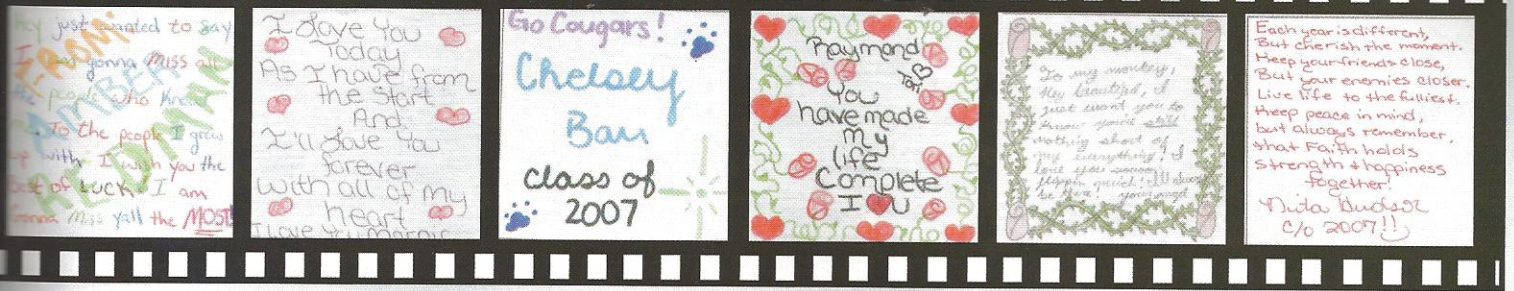 hey just wanted to say
I am gonna Miss all
the people who know
To the people I grew
up with I wish you the
Best of LUCK! I am
Gonna Miss yall the MOST!
FROM:
AMBER
REDMAN
I Love You
Today
As I have from
the Start
And
I'll Love You
forever
with all of my
heart
I Love You
Go Cougars!
Chelsey
class of
2007
Raymond
You
have made
my
life
Complete
I U
To my monkey,
Hey beautiful, I
just want you to
know you're still
nothing short of
my everything. I
love you
Each year is different,
But cherish the moment.
Keep your friends close,
But your enemies closer.
Live life to the fulliest.
Keep peace in mind,
but always remember,
that Faith holds
strength & happiness
together!
Nita Hudson
C/O 2007!!